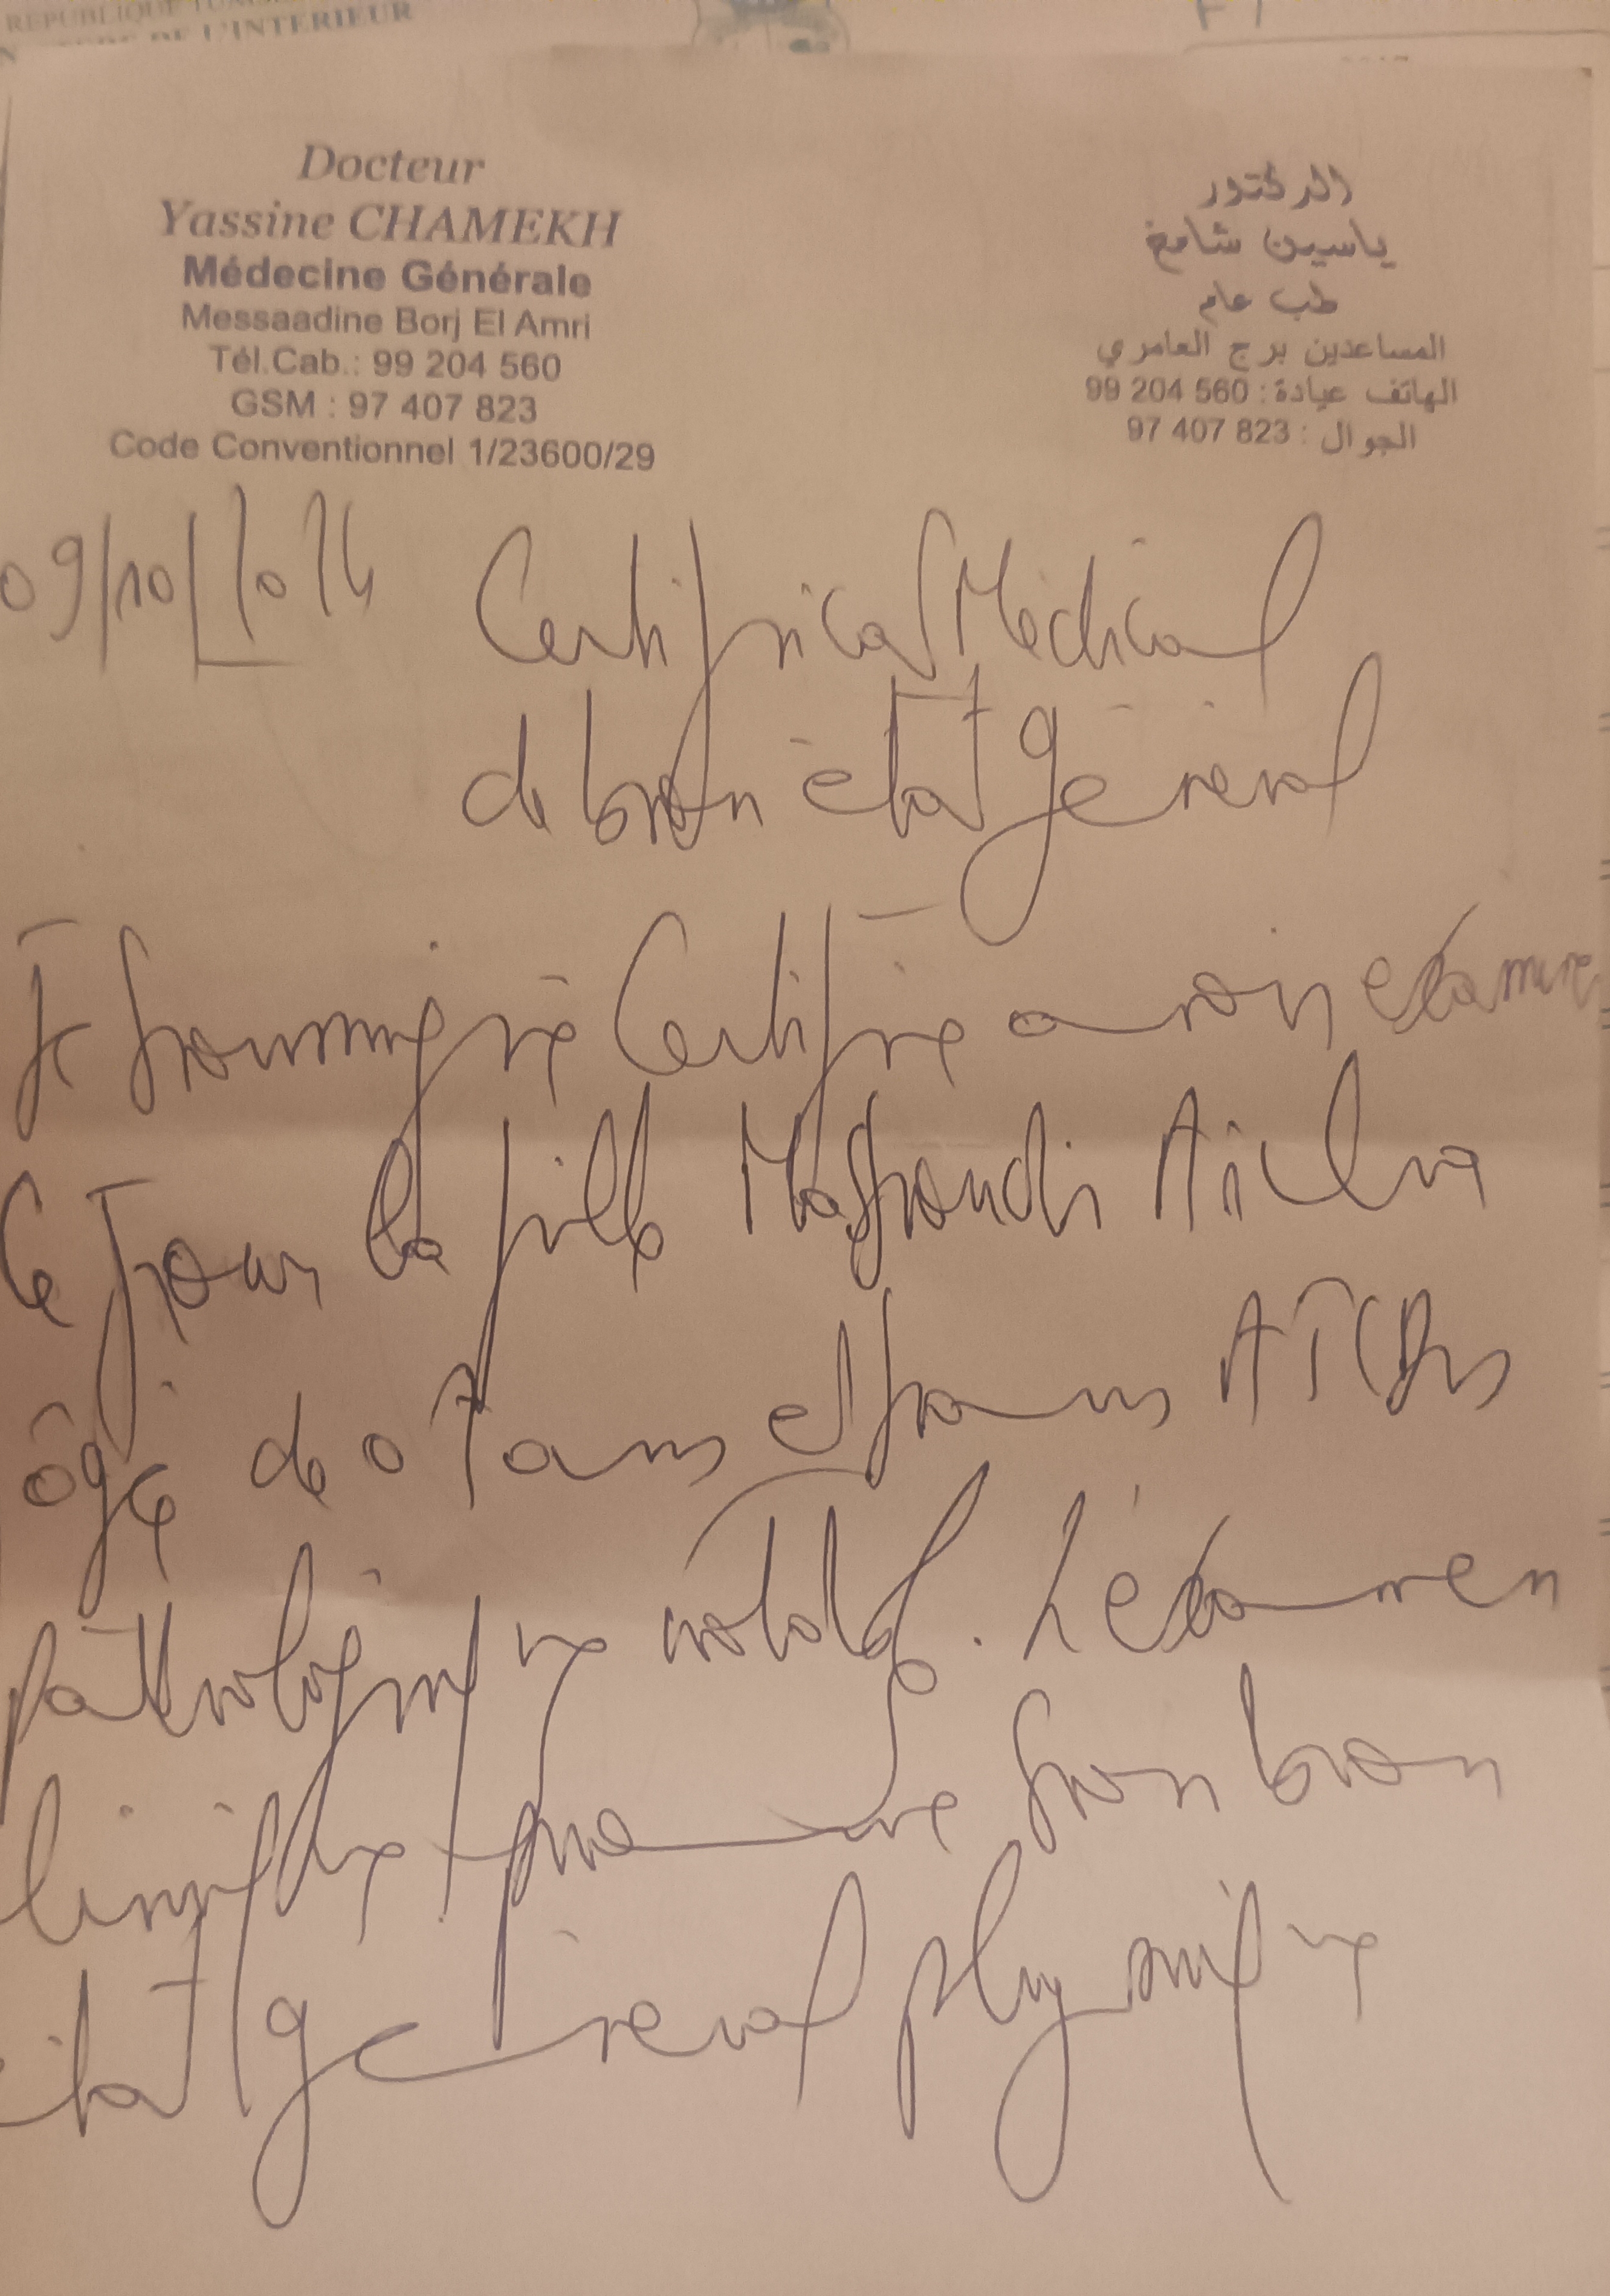 REPUBLIQUE
DE L'INTERIEUR
Docteur
Yassine CHAMEKH
Médecine Générale
Messaadine Borj El Amri
Tél.Cab.: 99 204 560
GSM : 97 407 823
Code Conventionnel 1/23600/29
الدكتور
ياسين شامخ
طب عام
المساعدين برج العامري
الهاتف عيادة : 560 204 99
الجوال : 823 407 97
09/10/2024
Certificat Médical
de bon état général
Je soussigné Certifie avoir examiné
Ce Jour la fille Aicha
âgé de 07 ans et sans ATCDs
pathologique notable. L'examen
clinique ce jour son bon
état général physique